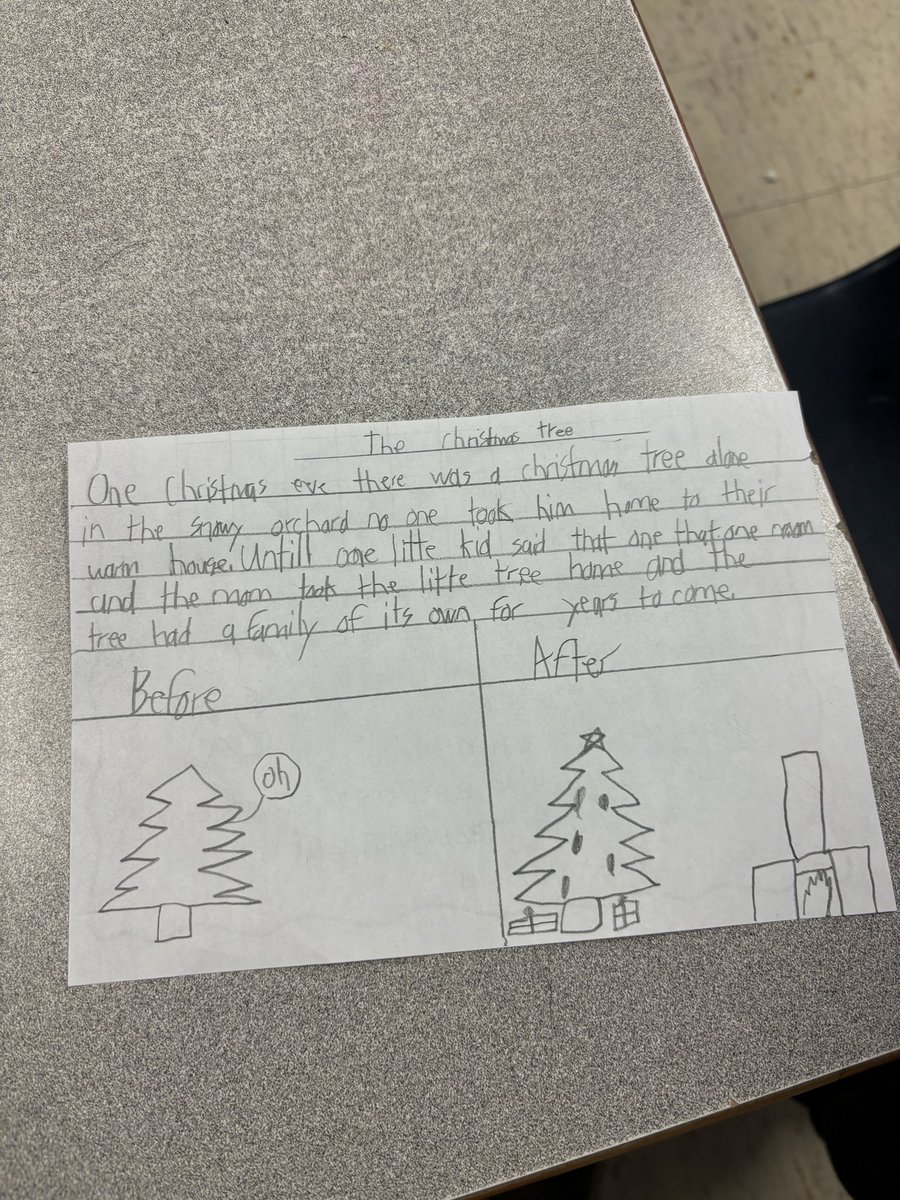 The christmas tree
One Christmas eve there was a christman tree alone
in the snowy orchard no one took him home to their
warm house. Untill one litte kid said that one that one mom
and the mom took the litte tree home and the
tree had a family of its own for years to come.
Before
After
oh